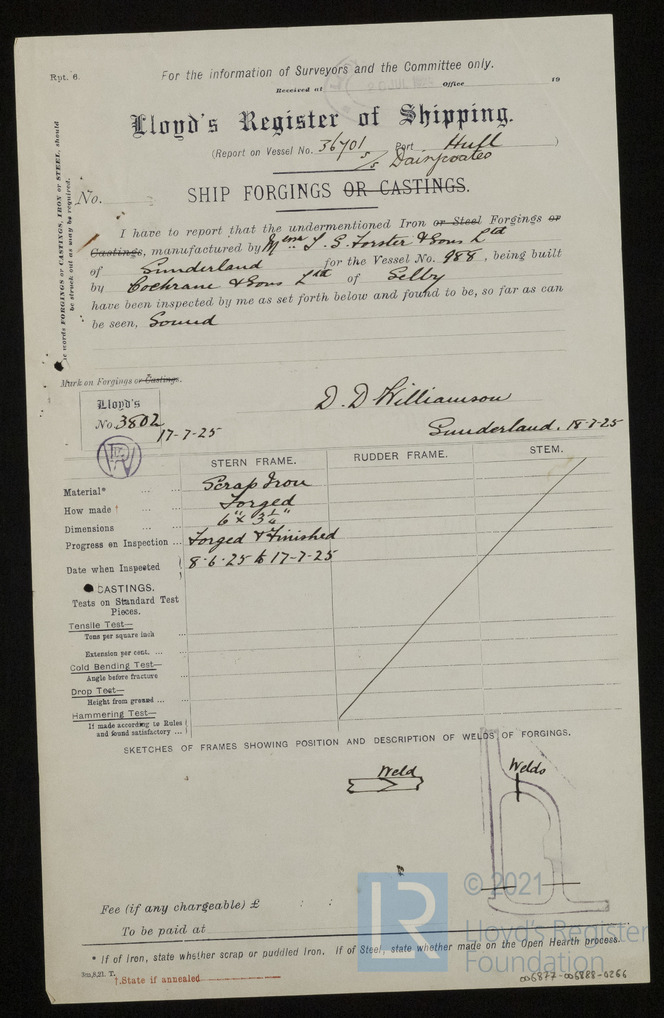 Rpt. 6.
For the information of Surveyors and the Committee only.
Received at 20 JUL Office 19
Lloyd's Register of Shipping.
(Report on Vessel No. 36701 Port Hull )
5/5 Dairycoates
No.
SHIP FORGINGS OR CASTINGS.
words FORGINGS or CASTINGS, IRON or STEEL, should
be struck out as may be required.
I have to report that the undermentioned Iron or Steel Forgings or
Castings, manufactured by Messrs T. S. Forster & Sons Ltd
of Sunderland for the Vessel No. 988, being built
by Cochrane & Sons Ltd of Selby
have been inspected by me as set forth below and found to be, so far as can
be seen, Sound
Mark on Forgings or Castings.
Lloyd's
No. 3802
17-7-25
D. D Williamson
Sunderland, 18-7-25
STERN FRAME. RUDDER FRAME. STEM.
Material* Scrap Iron
How made † Forged
Dimensions 6" x 3 1/4"
Progress on Inspection Forged & Finished
Date when Inspected 8-6-25 to 17-7-25
CASTINGS.
Tests on Standard Test
Pieces.
Tensile Test—
Tons per square inch
Extension per cent.
Cold Bending Test—
Angle before fracture
Drop Test—
Height from ground
Hammering Test—
If made according to Rules
and found satisfactory
SKETCHES OF FRAMES SHOWING POSITION AND DESCRIPTION OF WELDS OF FORGINGS.
Weld
Welds
Fee (if any chargeable) £ : :
To be paid at
* If of Iron, state whether scrap or puddled Iron. If of Steel, state whether made on the Open Hearth process.
3m,6,21. T.
†.State if annealed
LR
© 2021
Lloyd's Register
Foundation
006877-006888-0266